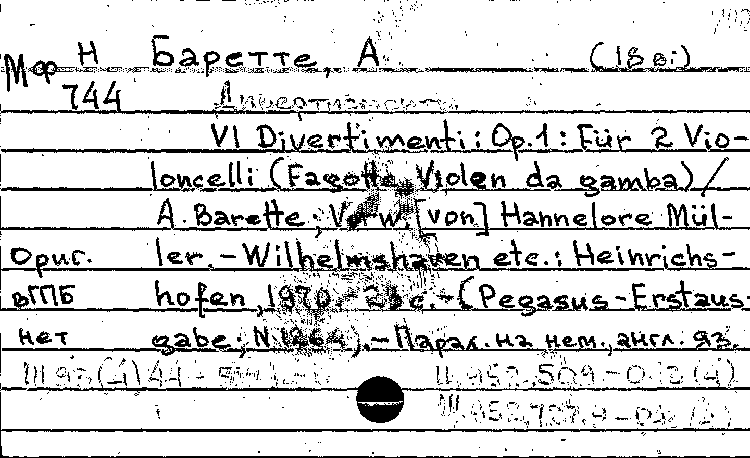 Мф Н Баретте, А. (18 в.)
744 Дивертисменты
VI Divertimenti: Op.1: Für 2 Vio-
loncelli (Fagotte, Violen da gamba) /
A. Barette; Vorw. [von] Hannelore Mül-
Ориг. ler. - Wilhelmshaven etc.: Heinrichs-
вГПБ hofen, 1970. - с. - (Pegasus-Erstaus-
нет gabe; N. 1264). - Парал. на нем., англ. яз.